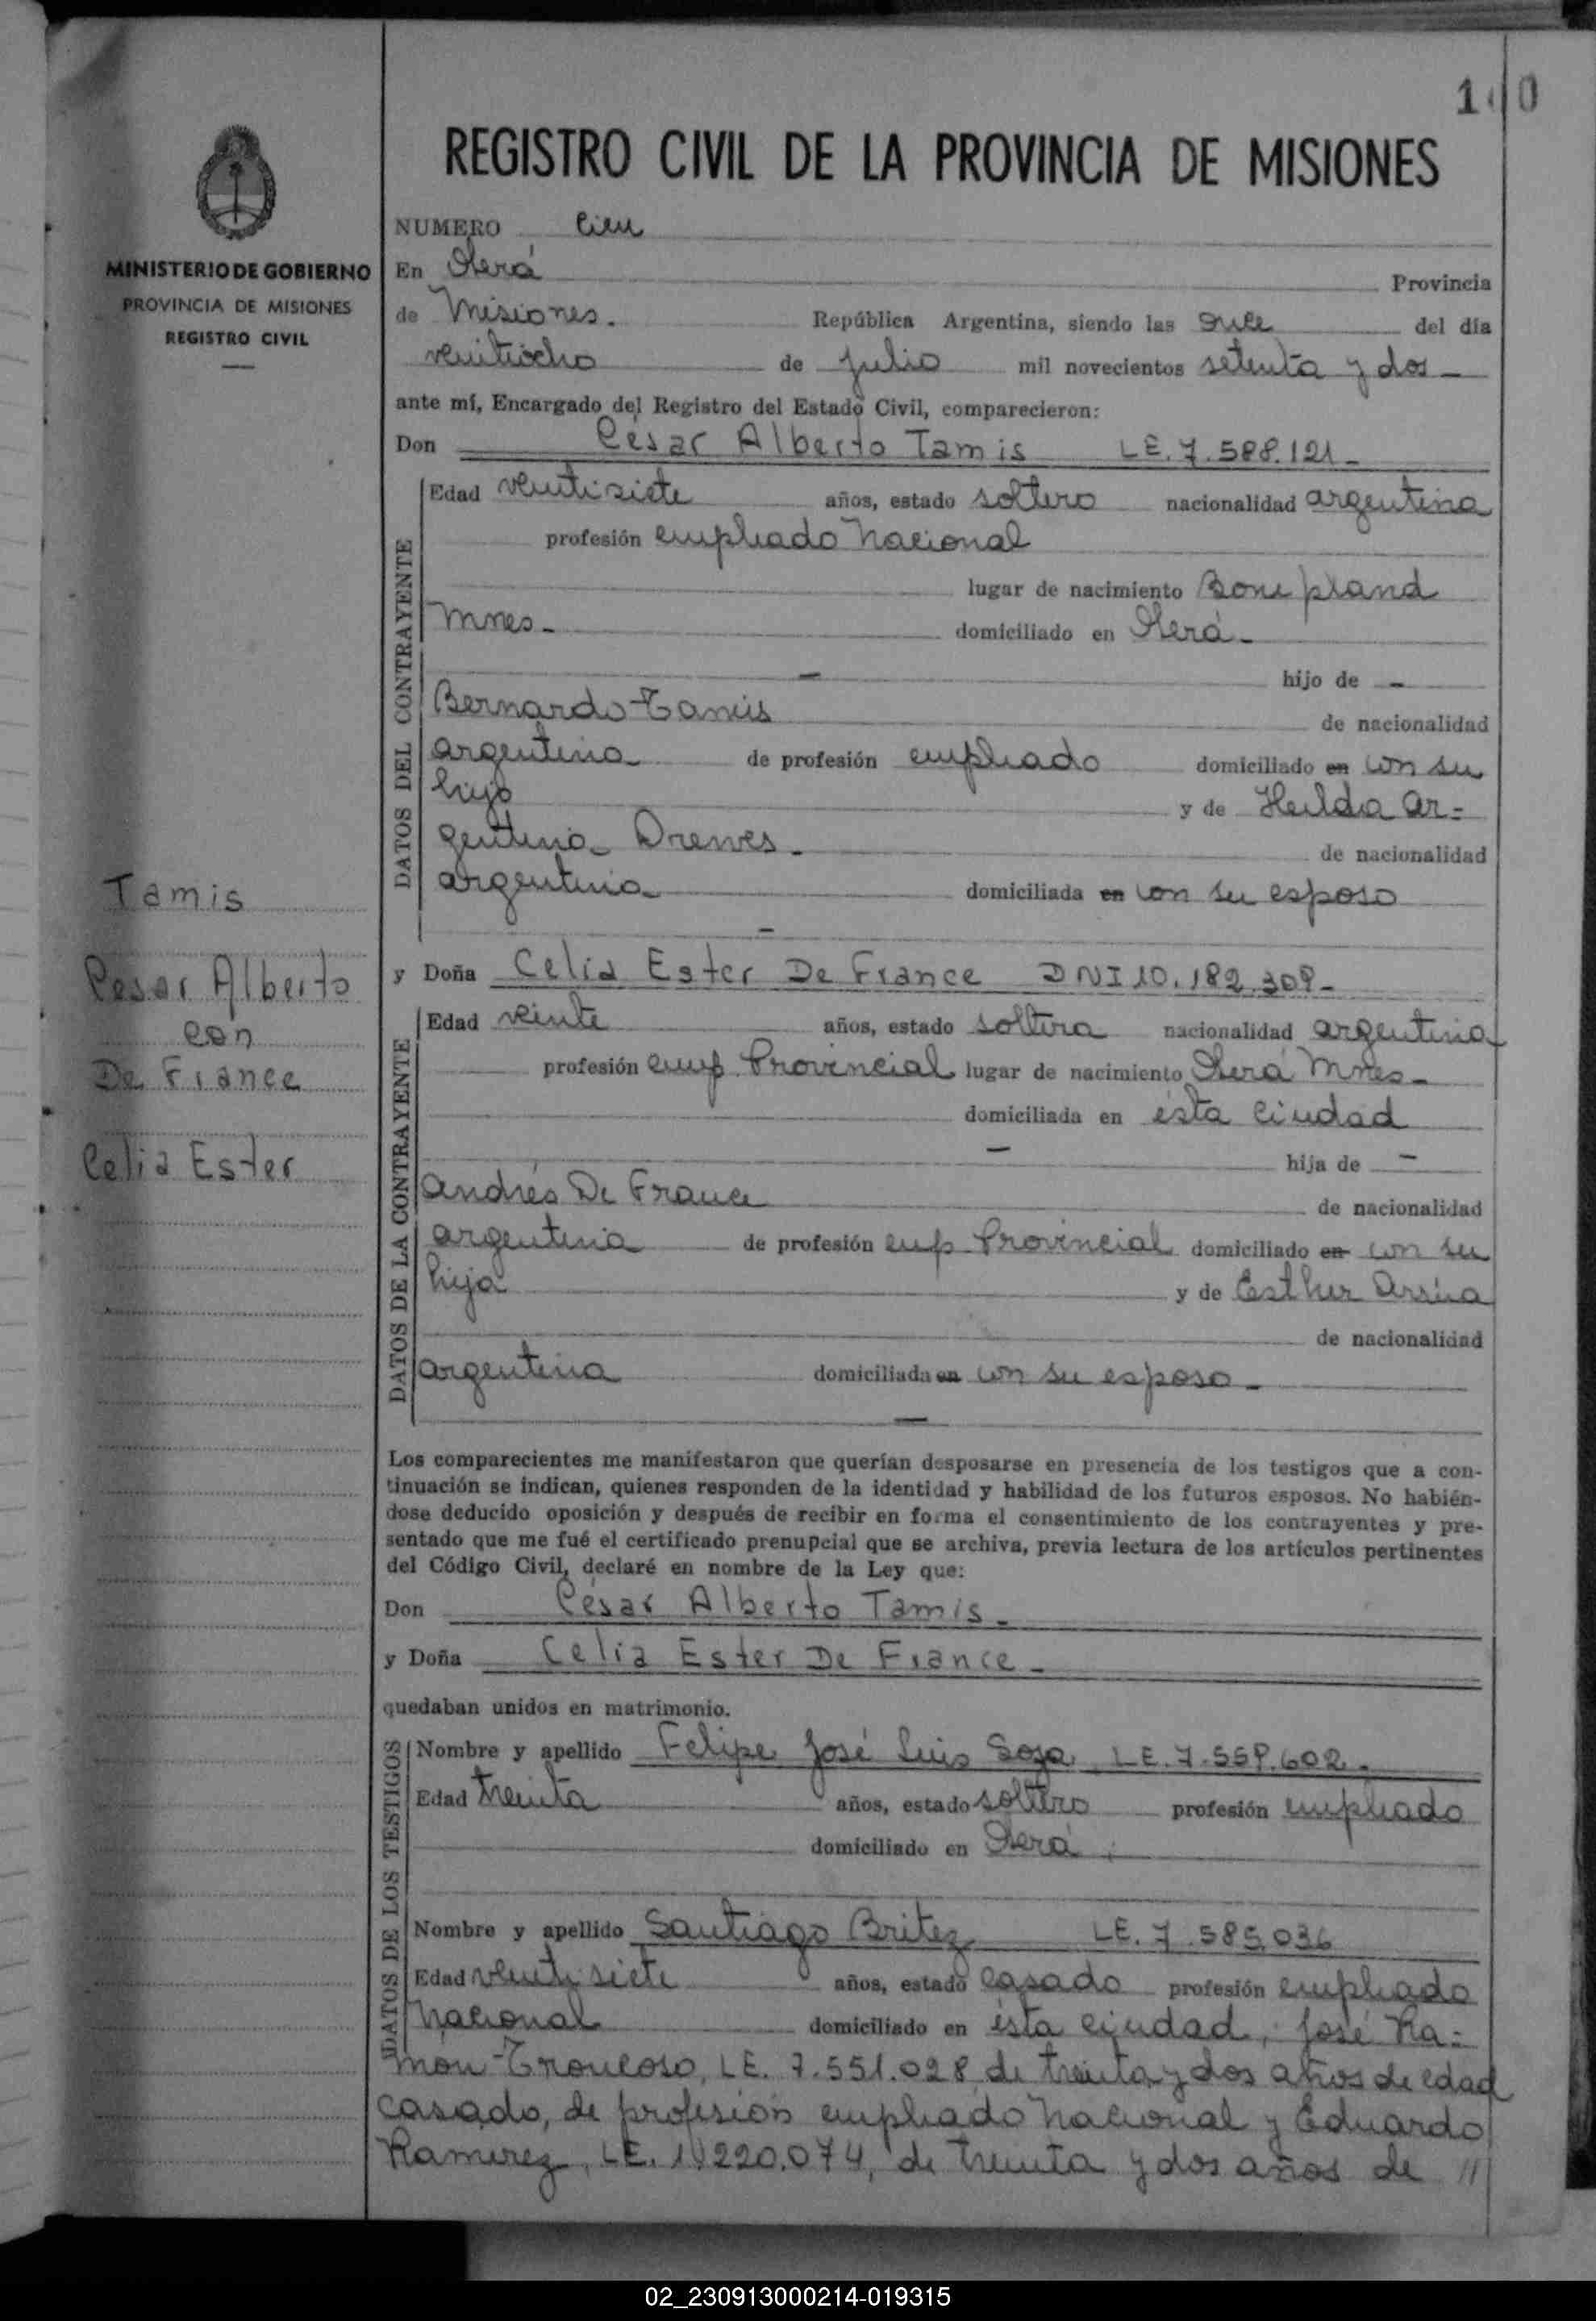 100
REGISTRO CIVIL DE LA PROVINCIA DE MISIONES
MINISTERIO DE GOBIERNO
PROVINCIA DE MISIONES
REGISTRO CIVIL
NUMERO cien
En Oberá Provincia
de Misiones. República Argentina, siendo las once del día
veintiocho de julio mil novecientos setenta y dos -
ante mí, Encargado del Registro del Estado Civil, comparecieron:
Don César Alberto Tamis LE. 7.588.121-
DATOS DEL CONTRAYENTE
Edad veintisiete años, estado soltero nacionalidad argentina
profesión empleado Nacional
lugar de nacimiento Bonepland
Mnes- domiciliado en Oberá-
- hijo de -
Bernardo Tamis de nacionalidad
argentina de profesión empleado domiciliado en con su
hijo y de Hilda Ar=
gentina Drewes- de nacionalidad
argentina domiciliada en con su esposo
-
Tamis
Cesar Alberto
con
De France
Celia Ester
y Doña Celia Ester De France DNI 10.182.308-
DATOS DE LA CONTRAYENTE
Edad veinte años, estado soltera nacionalidad argentina
profesión emp. Provincial lugar de nacimiento Oberá Mnes-
domiciliada en ésta ciudad
- hija de -
Andrés De France de nacionalidad
argentina de profesión emp Provincial domiciliado en con su
hija y de Esther Arrúa
de nacionalidad
argentina domiciliada en con su esposo-
-
Los comparecientes me manifestaron que querían desposarse en presencia de los testigos que a con-
tinuación se indican, quienes responden de la identidad y habilidad de los futuros esposos. No habién-
dose deducido oposición y después de recibir en forma el consentimiento de los contrayentes y pre-
sentado que me fué el certificado prenupcial que se archiva, previa lectura de los artículos pertinentes
del Código Civil, declaré en nombre de la Ley que:
Don César Alberto Tamis-
y Doña Celia Ester De France-
quedaban unidos en matrimonio.
DATOS DE LOS TESTIGOS
Nombre y apellido Felipe José Luis Sosa LE. 7.558.602-
Edad treinta años, estado soltero profesión empleado
domiciliado en Oberá.
Nombre y apellido Santiago Britez LE. 7.585.036
Edad veintisiete años, estado casado profesión empleado
Nacional domiciliado en ésta ciudad, José Ra=
món Troncoso, LE. 7.551.028 de treinta y dos años de edad
casado, de profesión empleado Nacional y Eduardo
Ramirez, LE. 220.074, de treinta y dos años de //
02_230913000214-019315